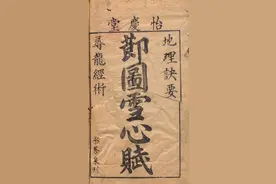 怡慶堂
地理訣要
卽圖雪心賦
尋龍經術